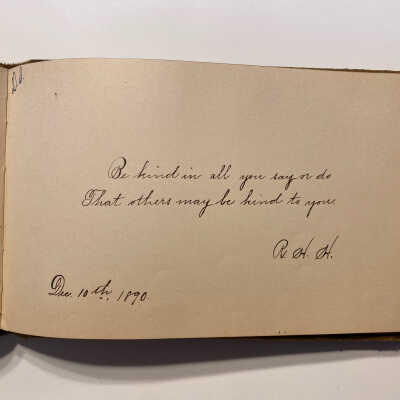 Be kind in all you say or do
That others may be kind to you.
R. H. H.
Dec. 10th. 1890.